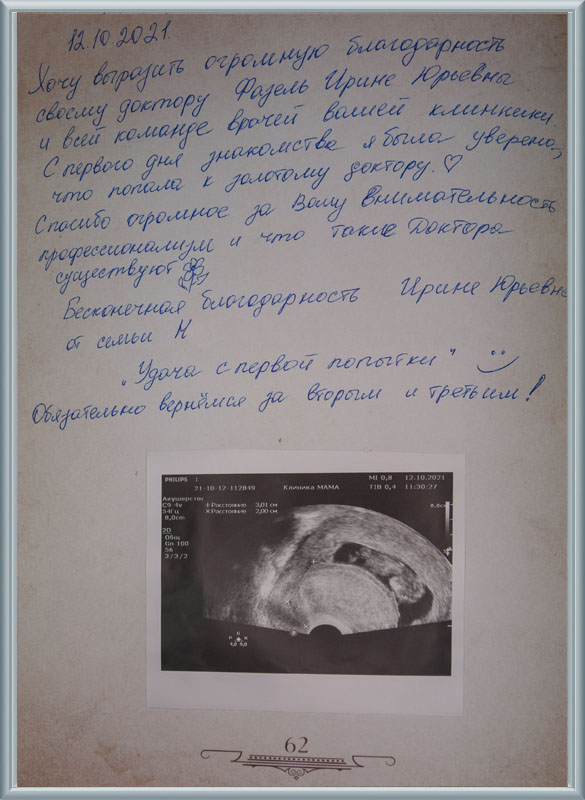 12.10.2021.
Хочу выразить огромную благодарность
своему доктору Фазель Ирине Юрьевны
и всей команде врачей вашей клинники.
С первого дня знакомства я была уверена,
что попала к золотому доктору. ♡
Спасибо огромное за Вашу внимательность
профессионализм и что такие Доктора
существуют
Бесконечная благодарность Ирине Юрьевне
от семьи Н
"Удача с первой попытки"
Обязательно вернёмся за вторым и третьим!
PHILIPS
MI 0,8 12.10.2021
21-10-12-112849 Клиника МАМА TIB 0,4 11:30:27
Акушерство
C9 4v + Расстояние 3,01 см
54Гц × Расстояние 2,00 см
8,0cm
2D
Общ
Gn 100
56
3/3/2
62